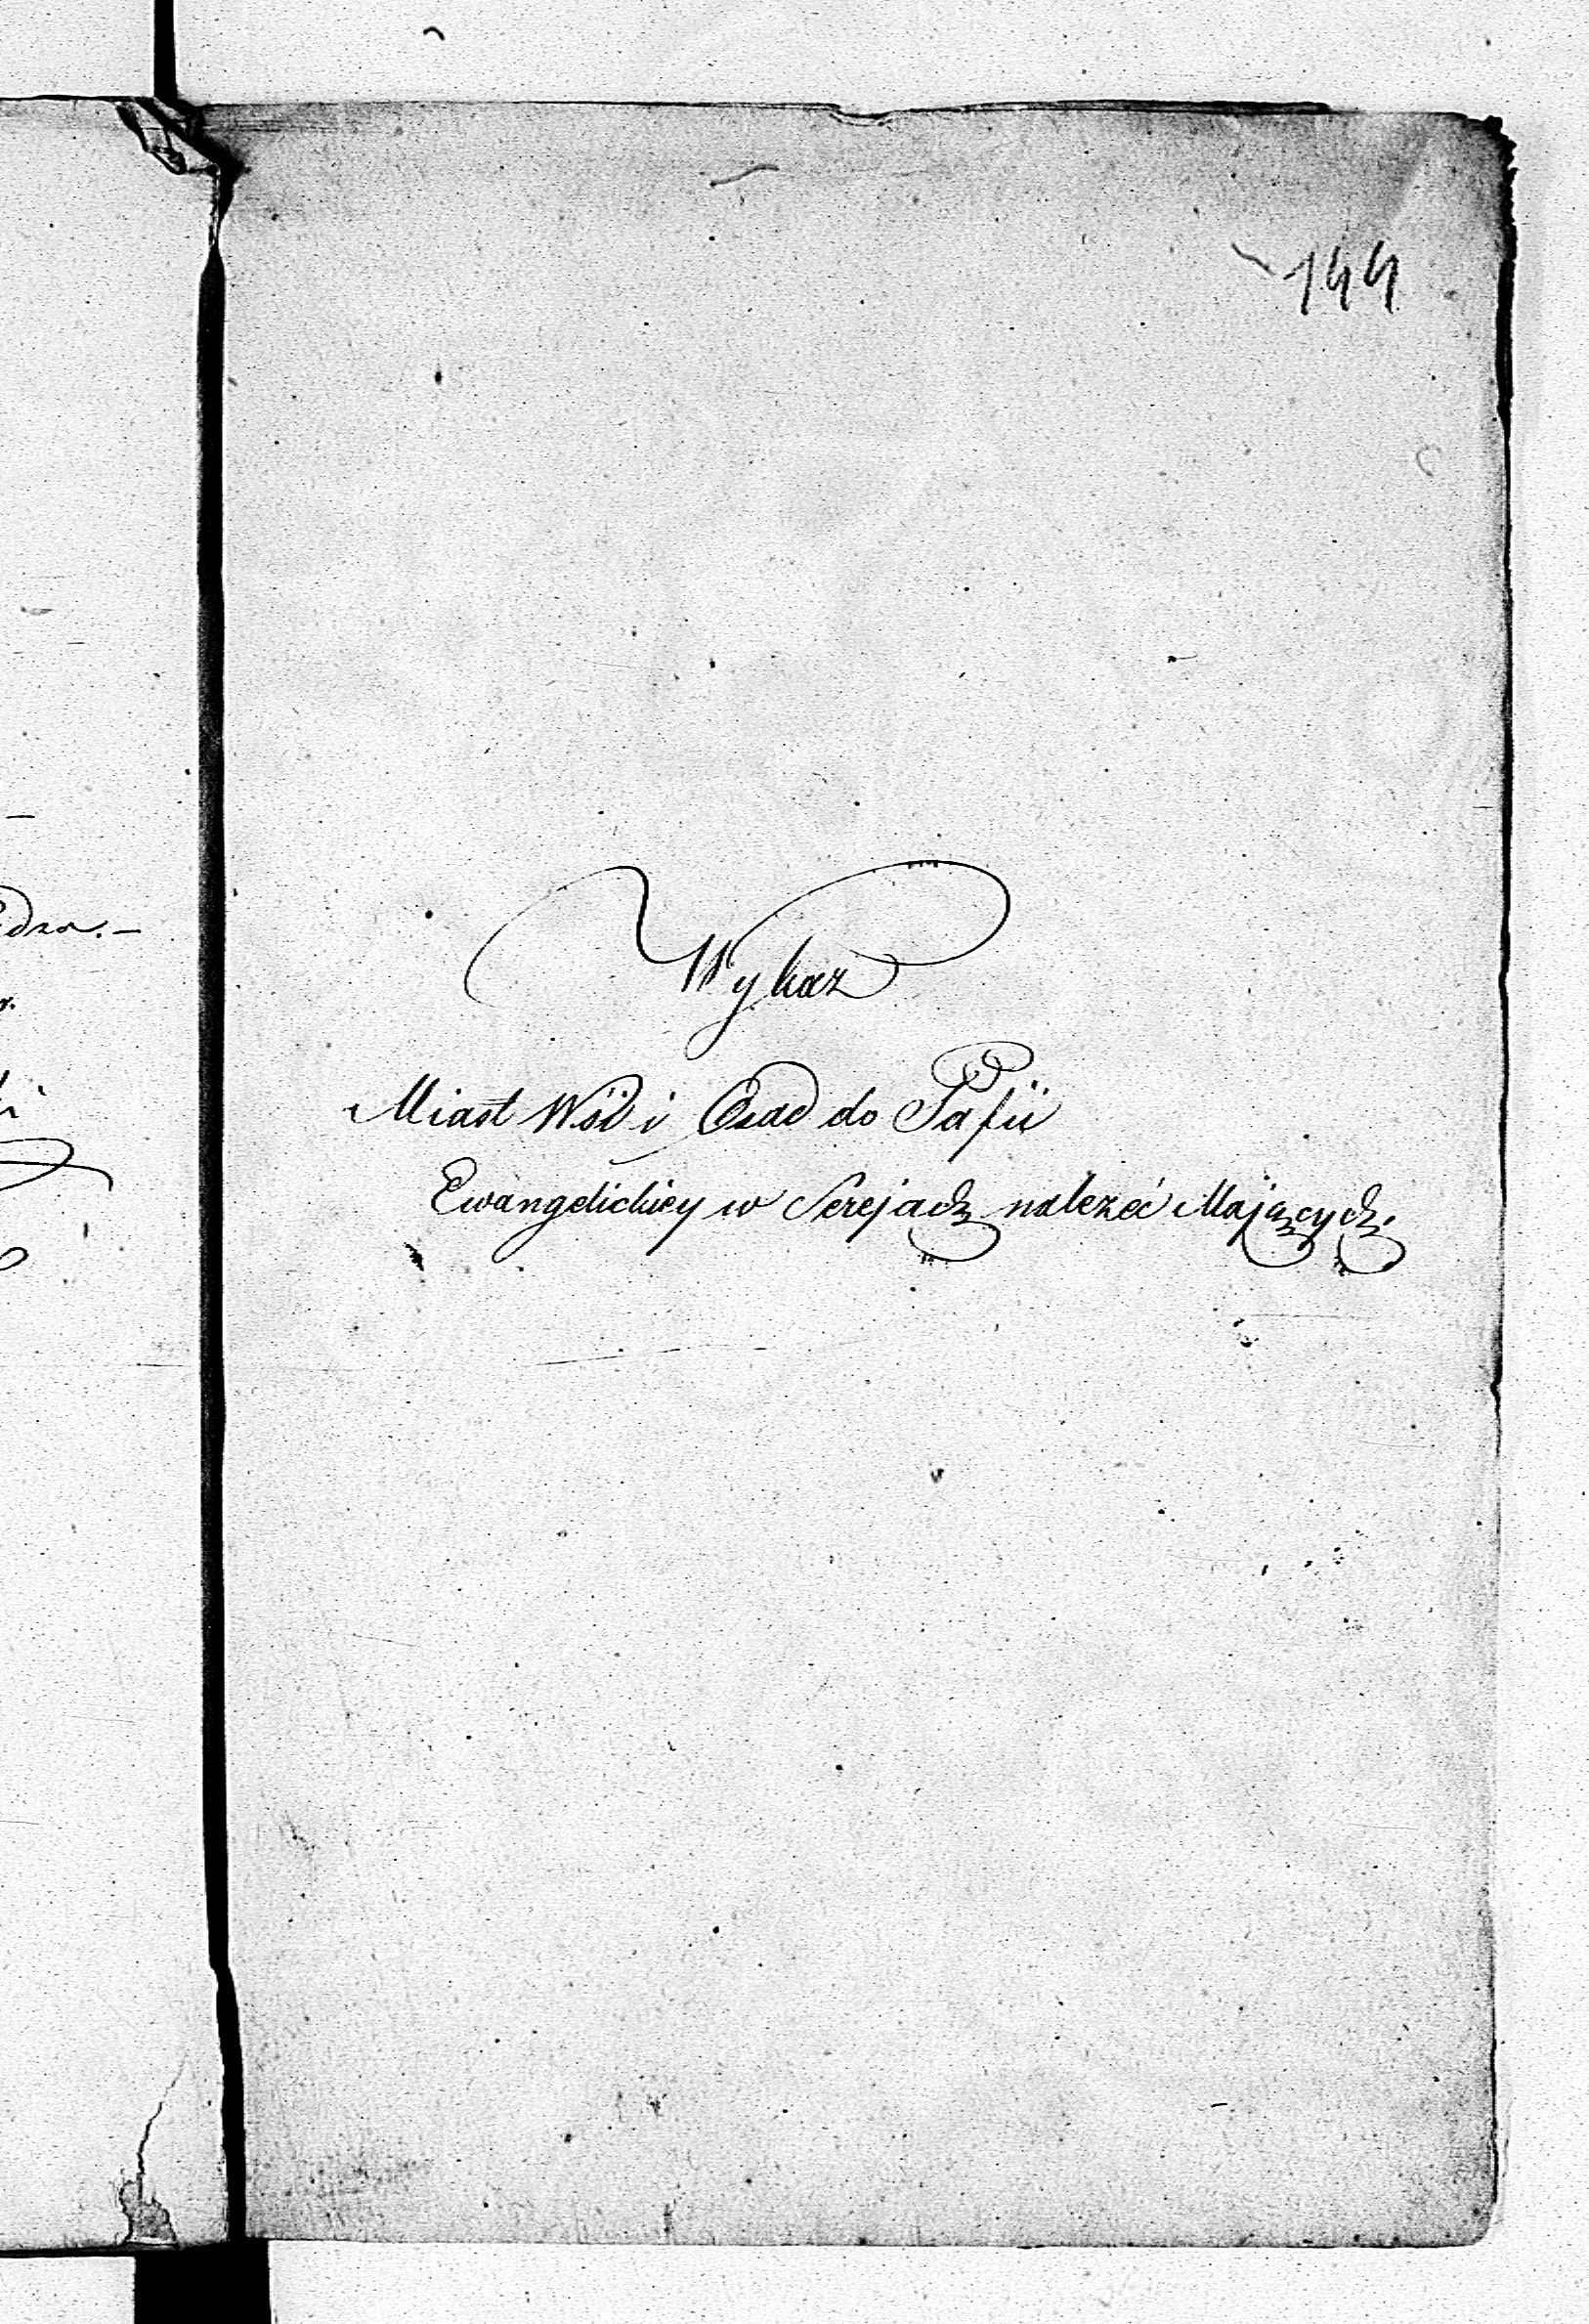 144
Wykaz
Miast Wsi i Osad do Pafii
Ewangelickiey w Serejach należeć Mających.